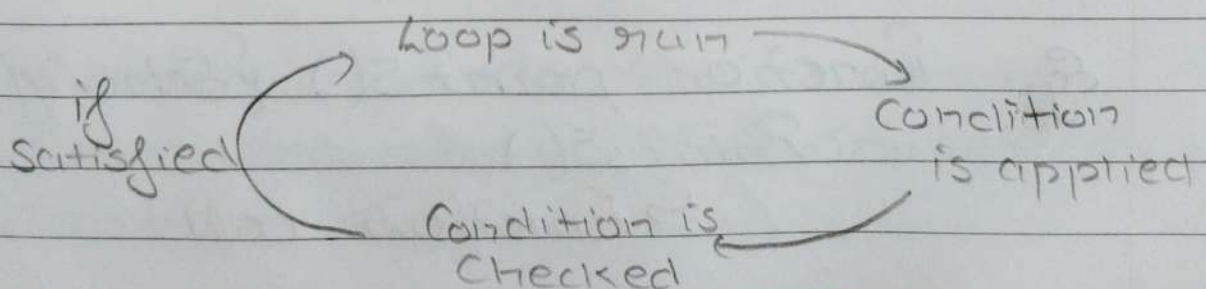 Loop is run
if
satisfied
Condition
is applied
Condition is
Checked